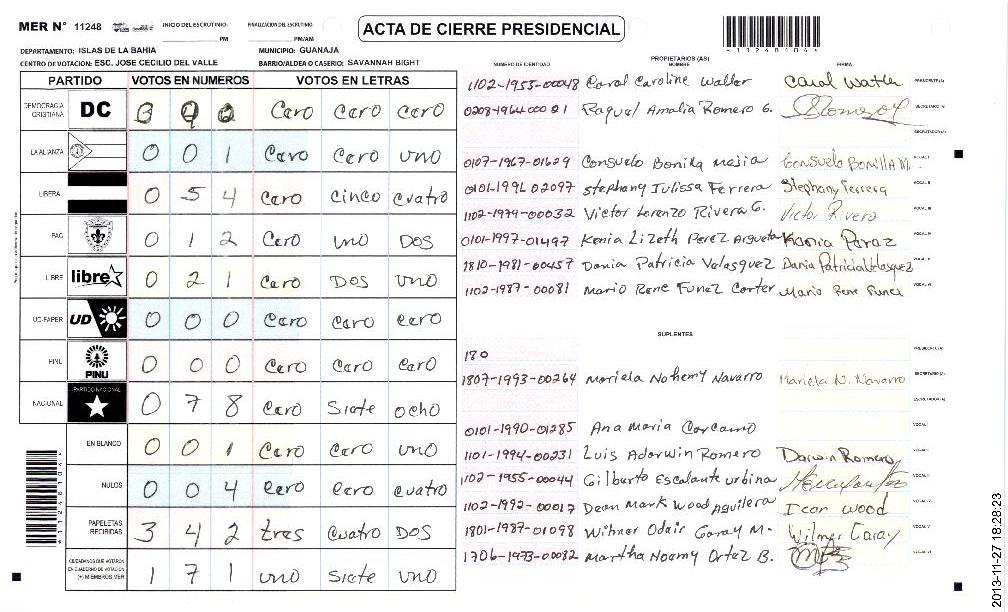 MER N° 11248 INICIO DEL ESCRUTINIO: PM FINALIZACION DEL ESCRUTINIO PM/AM
ACTA DE CIERRE PRESIDENCIAL
DEPARTAMENTO: ISLAS DE LA BAHIA MUNICIPIO: GUANAJA
CENTRO DE VOTACION: ESC. JOSE CECILIO DEL VALLE BARRIO/ALDEA O CASERIO: SAVANNAH BIGHT
PARTIDO VOTOS EN NUMEROS VOTOS EN LETRAS
DEMOCRACIA CRISTIANA DC 0 0 0 Cero Cero cero
LA ALIANZA 0 0 1 Cero Cero uno
LIBERAL 0 5 4 Cero Cinco cuatro
FAC 0 1 2 Cero uno Dos
LIBRE libre 0 2 1 Cero Dos uno
UD-FAPER UD 0 0 0 Cero Cero cero
PINU PINU 0 0 0 Cero Cero Cero
NACIONAL PARTIDO NACIONAL 0 7 8 Cero Siete ocho
EN BLANCO 0 0 1 Cero Cero uno
NULOS 0 0 4 Cero Cero cuatro
PAPELETAS RECIBIDAS 3 4 2 tres Cuatro DOS
CIUDADANOS QUE VOTARON EN CUADERNO DE VOTACION (+) MIEMBROS MER 1 7 1 uno Siete uno
PROPIETARIOS (AS)
NUMERO DE IDENTIDAD NOMBRE FIRMA
1102-1955-00048 Caral Caroline Waller Caral PRESIDENTE(A)
0208-1964-00081 Raquel Amalia Romero G. SECRETARIO(A)
ESCRUTADOR(A)
0107-1967-01629 Consuelo Bonilla Mejia Consuelo Bonilla M. VOCAL I
0101-1991 02097 Stephany Iulissa Ferrera Stephany Ferrera VOCAL II
1102-1979-00032 Victor Lorenzo Rivera G. Victor Rivera VOCAL III
0101-1997-01497 Kenia Lizeth Perez Argueta Kenia Peraz VOCAL IV
1810-1981-00457 Dania Patricia Velasquez Dania Patricia Velasquez VOCAL V
1102-1987-00081 Mario Rene Funez Carter Mario Rene Funez VOCAL VI
SUPLENTES
180 PRESIDENTE(A)
1807-1993-00264 Mariela Nohemy Navarro Mariela N. Navarro SECRETARIO(A)
ESCRUTADOR(A)
0101-1990-01285 Ana Maria Carcamo VOCAL I
1101-1994-00231 Luis Adorwin Romero Darwin Romero VOCAL II
1102-1955-00044 Gilberto Escalante urbina
1102-1992-00017 Dean Mark Wood Aguilera Icar wood VOCAL IV
1801-1987-01098 Wilmer Odair Garay M. Wilmer Garay VOCAL V
1706-1973-00082 Martha Noamy Ortez B. VOCAL VI
1124810 4
2013-11-27 18:28:23